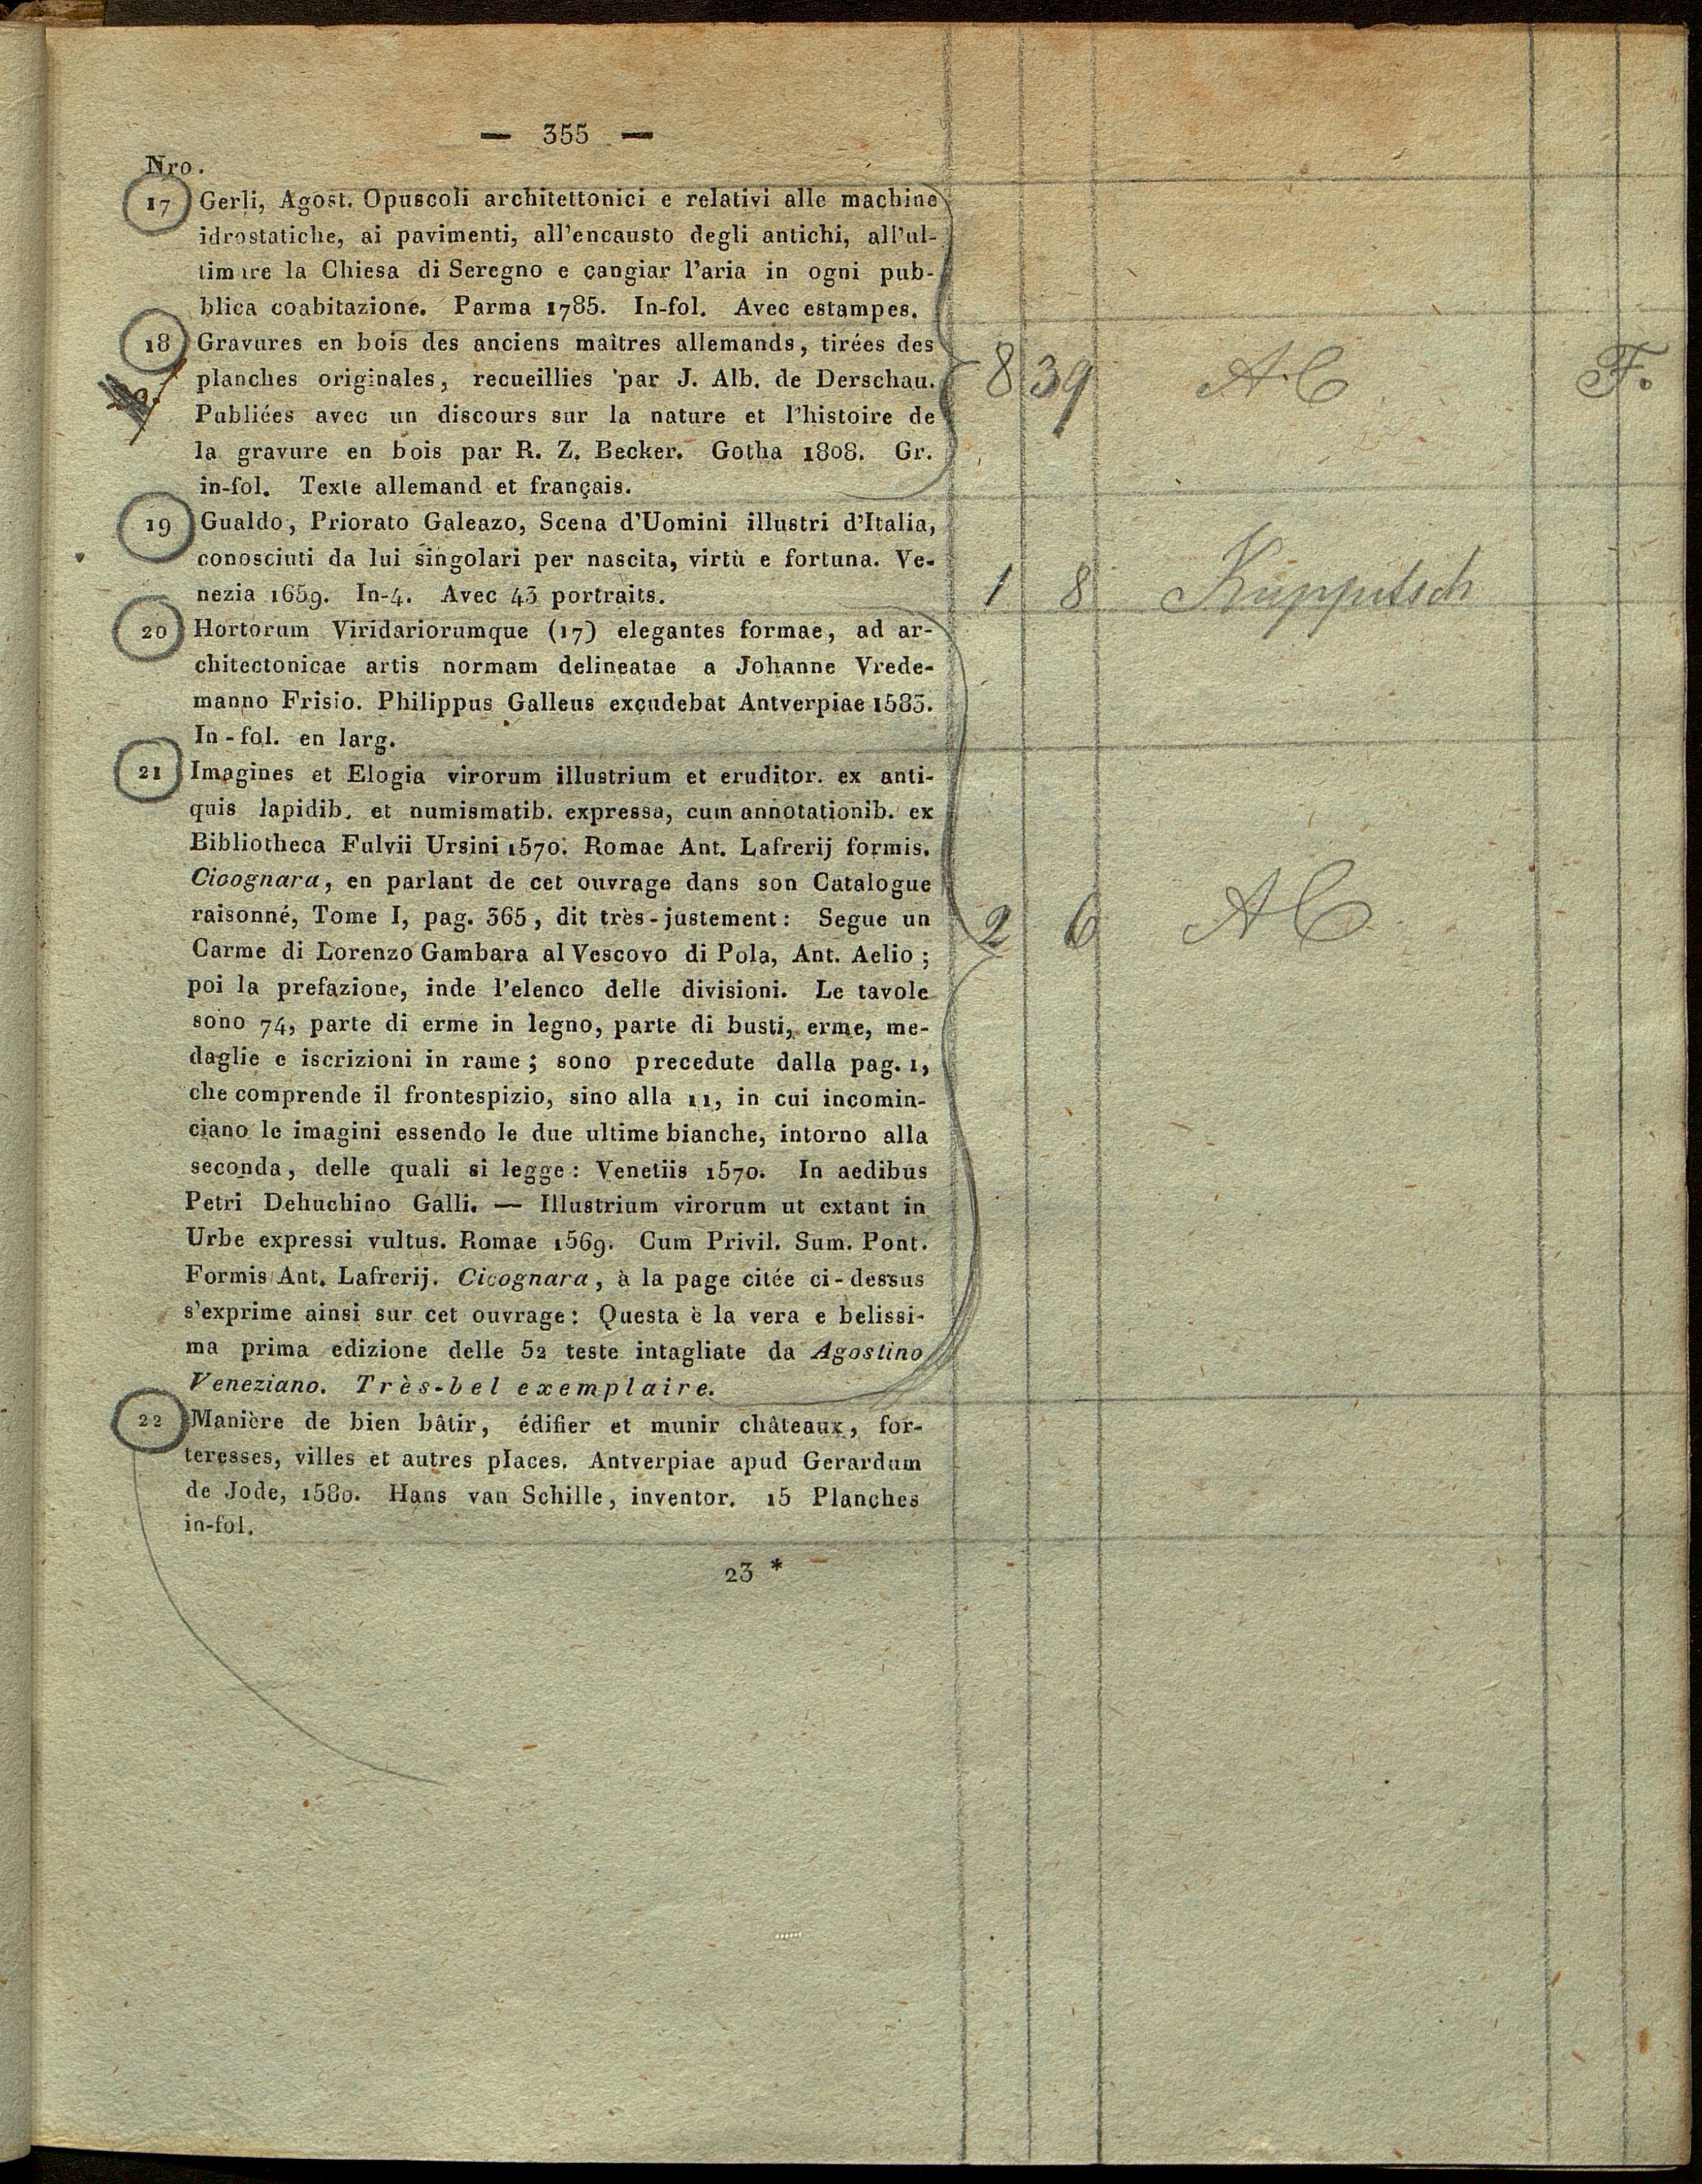 — 355 —
Nro.
17 Gerli, Agost. Opuscoli architettonici e relativi alle machine
idrostatiche, ai pavimenti, all'encausto degli antichi, all'ul-
timare la Chiesa di Seregno e cangiar l'aria in ogni pub-
blica coabitazione. Parma 1785. In-fol. Avec estampes.
18 Gravures en bois des anciens maîtres allemands, tirées des
planches originales, recueillies par J. Alb. de Derschau.
8 39 AC F.
Publiées avec un discours sur la nature et l'histoire de
la gravure en bois par R. Z. Becker. Gotha 1808. Gr.
in-fol. Texte allemand et français.
19 Gualdo, Priorato Galeazo, Scena d'Uomini illustri d'Italia,
conosciuti da lui singolari per nascita, virtù e fortuna. Ve-
nezia 1659. In-4. Avec 43 portraits.
1 8 Kuppitsch
20 Hortorum Viridariorumque (17) elegantes formae, ad ar-
chitectonicae artis normam delineatae a Johanne Vrede-
manno Frisio. Philippus Galleus excudebat Antverpiae 1583.
In-fol. en larg.
21 Imagines et Elogia virorum illustrium et eruditor. ex anti-
quis lapidib. et numismatib. expressa, cum annotationib. ex
Bibliotheca Fulvii Ursini 1570. Romae Ant. Lafrerij formis.
Cicognara, en parlant de cet ouvrage dans son Catalogue
raisonné, Tome I, pag. 365, dit très-justement: Segue un
2 6 AC
Carme di Lorenzo Gambara al Vescovo di Pola, Ant. Aelio;
poi la prefazione, inde l'elenco delle divisioni. Le tavole
sono 74, parte di erme in legno, parte di busti, erme, me-
daglie e iscrizioni in rame; sono precedute dalla pag. 1,
che comprende il frontespizio, sino alla 11, in cui incomin-
ciano le imagini essendo le due ultime bianche, intorno alla
seconda, delle quali si legge: Venetiis 1570. In aedibus
Petri Dehuchino Galli. — Illustrium virorum ut extant in
Urbe expressi vultus. Romae 1569. Cum Privil. Sum. Pont.
Formis Ant. Lafrerij. Cicognara, à la page citée ci-dessus
s'exprime ainsi sur cet ouvrage: Questa è la vera e belissi-
ma prima edizione delle 52 teste intagliate da Agostino
Veneziano. Très-bel exemplaire.
22 Manière de bien bâtir, édifier et munir châteaux, for-
teresses, villes et autres places. Antverpiae apud Gerardum
de Jode, 1580. Hans van Schille, inventor. 15 Planches
in-fol.
23 *